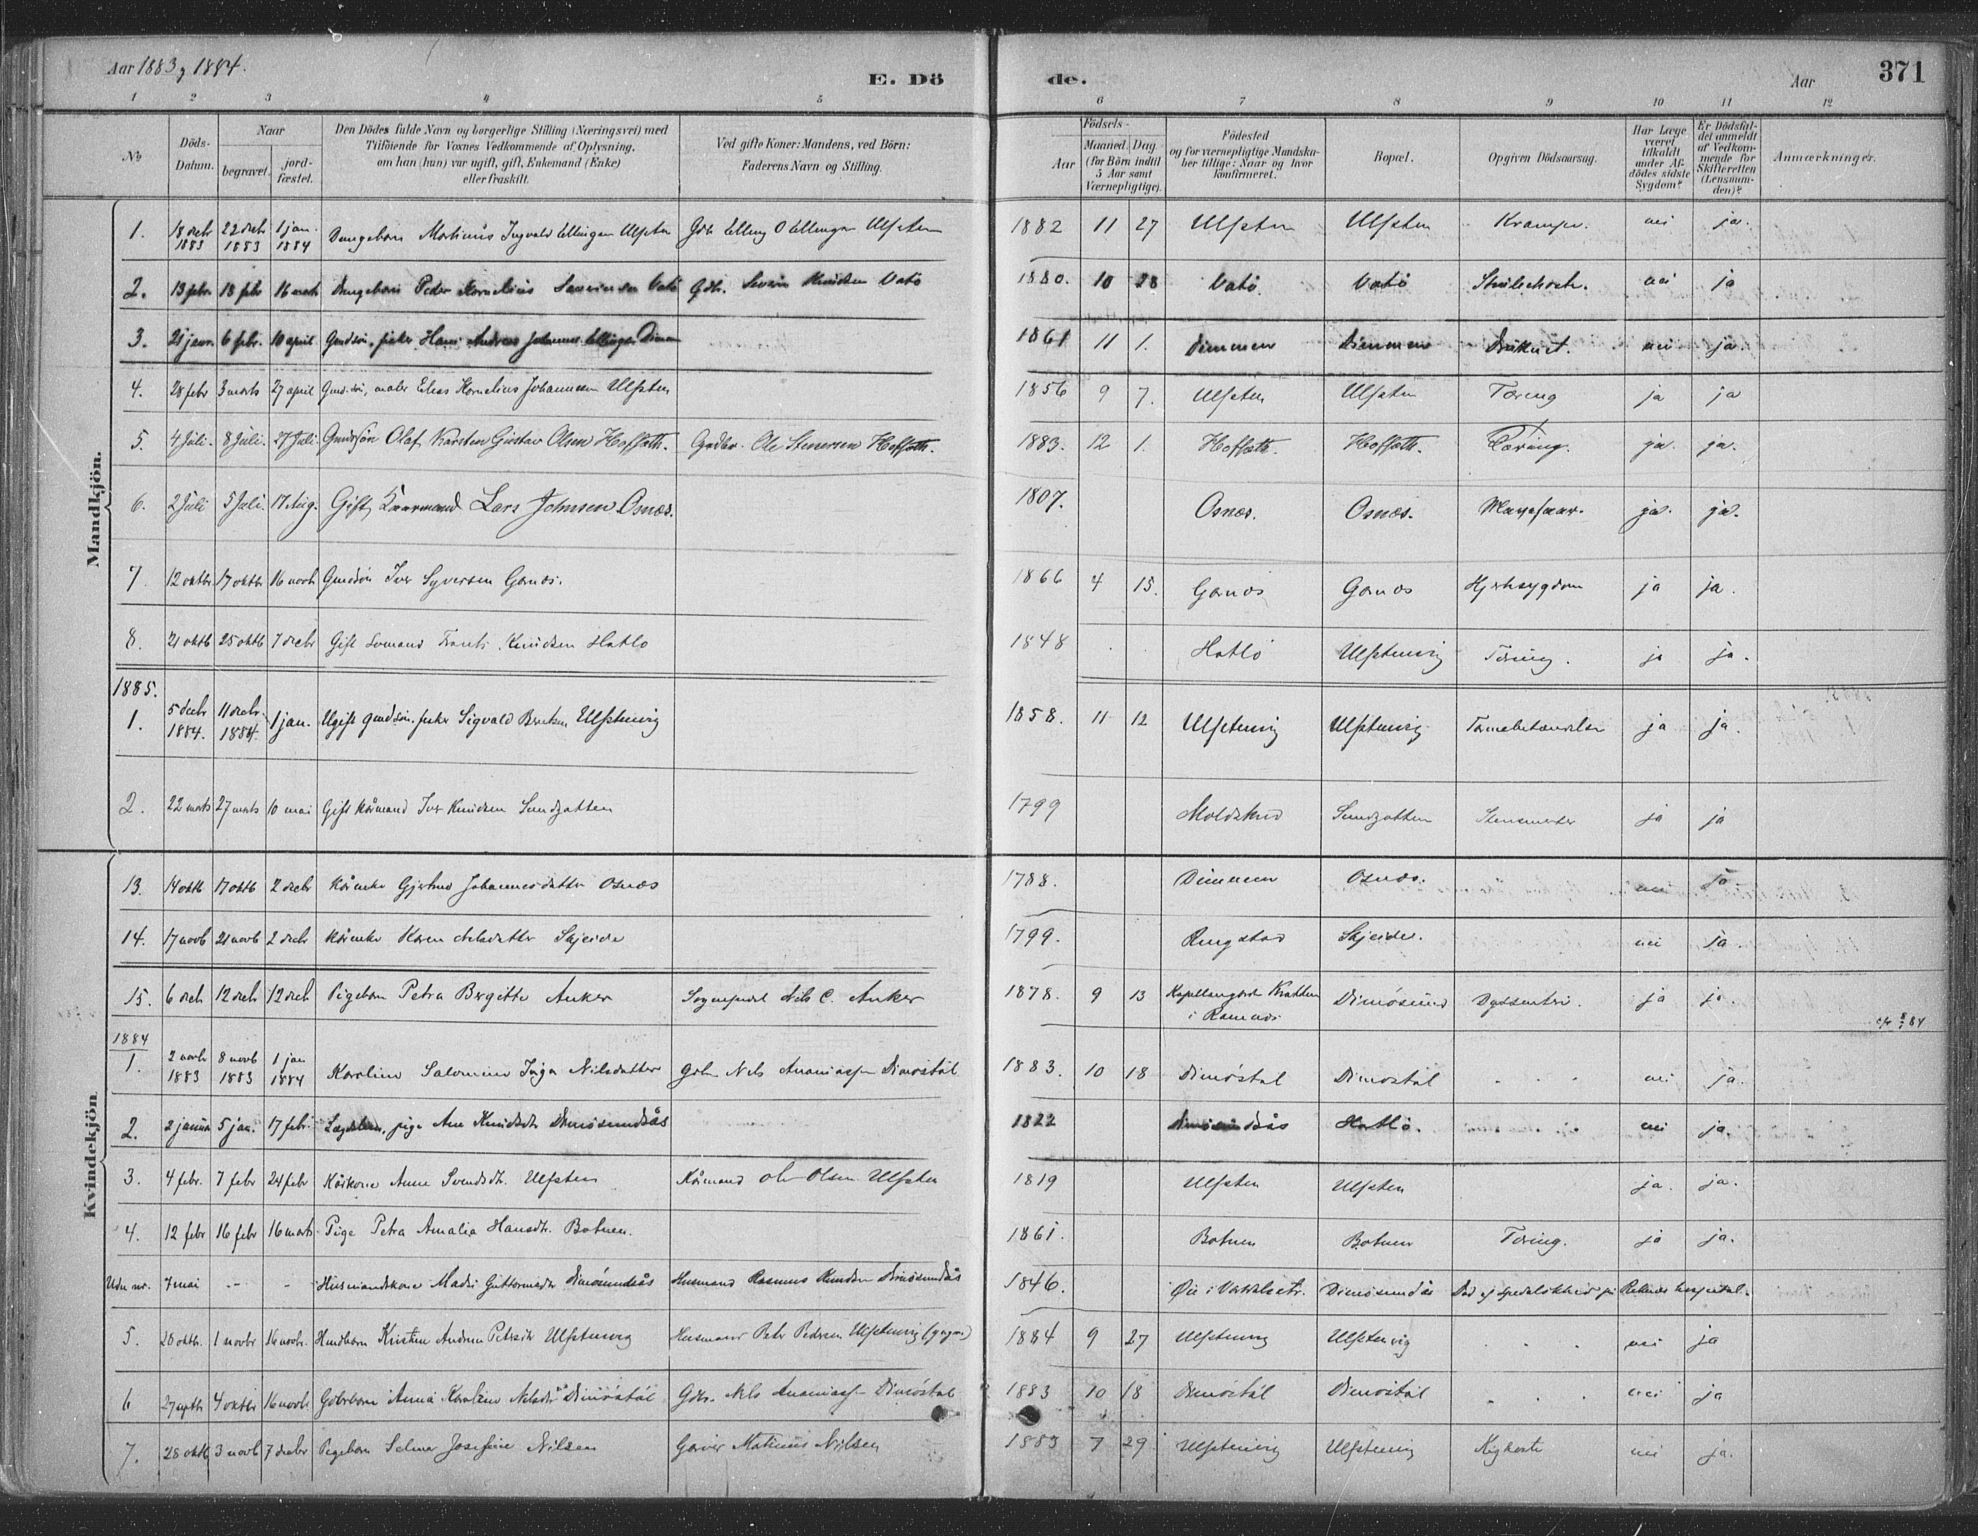 Aar 1883 og 1884.
E. Dö
de.
Aar
371
1 2 3 4 5 6 7 8 9 10 11 12
No
Döds-Datum.
Naar
begravet.
jord-fæstet.
Den Dödes fulde Navn og borgerlige Stilling (Næringsvei) med
Tilföiende for Voxnes Vedkommende af Oplysning,
om han (hun) var ugift, gift, Enkemand (Enke)
eller fraskilt.
Ved gifte Koner: Mandens, ved Börn:
Faderens Navn og Stilling.
Födsels-
Aar
Maaned.
Dag.
(for Börn indtil 5 Aar samt Værnepligtige).
Födested
og for værnepligtige Mandskaber tillige: Naar og hvor konfirmeret.
Bopæl.
Opgiven Dödsaarsag.
Har Læge været tilkaldt under Afdödes sidste Sygdom?
Er Dödsfaldet anmeldt af Vedkommende for Skifteretten (Lensmanden)?
Anmærkninger.
Mandkjön.
1. 18 decb 1883 22 decb 1883 1 jan. 1884 Drengebarn Martinus Ingvald Ellingsen Ulfsten Gdb Elling O Ellingsen Ulfsten 1882 11 27 Ulfsten Ulfsten Krampe. nei ja.
2. 13 febr. 18 febr 16 marts Drengebarn Peder Kornelius Severinsen Vatö Gdb. Severin Knudsen Vatö 1880. 10 28 Vatö Vatö nei ja
3. 21 janr. 6 febr. 10 april Gmdsön, fisker Hans Andreas Johannes Ellingsen Dimmen 1861 11 1. Dimmen Dimmen Druknet. nei ja.
4. 28 febr 3 marts 27 april Gmd.sön, maler Elias Kornelius Johannessen Ulfsten 1856 9 7. Ulfsten Ulfsten Tæring ja ja
5. 4 Juli. 8 Juli. 27 Juli. Gmdsön Olaf Karsten Gustav Olsen Hofseth. Gmdbr. Ole Stenersen Hofseth. 1883. 12 1. Hofseth. Hofseth. Tæring. ja. ja.
6. 2 Juli 5 Juli. 17 Aug. Gift Kaarmand Lars Johnsen Osnæs. 1807. Osnæs. Osnæs. ja. ja.
7. 12 oktbr 17 oktbr 16 novb Gmdsön Iver Syversen Garnæs. 1866 4 15. Garnæs Garnæs Hjertesygdom ja ja.
8. 21 oktb 25 oktb 7 decbr Gift Knudsen Hatlö 1848 Hatlö Ulfstenvig Tæring. ja ja.
1885.
1. 5 decbr 1884. 11 decbr. 1884. 1 jan. Ugift gmdsön, fisker Sigvald Ulfstenvig 1858. 11 12 Ulfstenvig Ulfstenvig Tarmebetændelse ja ja.
2. 22 marts 27 marts 10 mai Gift Kårmand Iver Knudsen Sundgotten 1799 Moldskred Sundgotten ja ja
Kvindekjön.
13. 14 oktb 17 oktb 2 decbr Kårenke Gjertrud Johannesdatter Osnæs 1788. Dimmen Osnæs. nei ja
14. 17 novb 21 novb 2 decbr Kårenke Karen Nelsdatter Skjeide 1799. Ringstad Skjeide. nei ja.
15. 6 decb 12 decb 12 decb Pigebarn Petra Bergitte Anker Sogneprest Nils C. Anker 1878. 9 13 Kapellangaard i Ramnæs Dimösund Dyssenteri. ja ja.
1884
1. 2 novbr 1883 8 novb 1883 1 jan 1884 Karoline Salomine Inga Nilsdatter Gdbr Nels Ananiassen Dimöstöl 1883. 10 18 Dimöstöl Dimöstöl nei ja.
2. 2 januar 5 jan. 17 febr. pige Ane Knudsdtr Dimösundsås 1822 Dimösundsås Hatlö. nei ja
3. 4 febr. 7 febr 24 febr Kårkone Anne Svendsdtr. Ulfsten Kårmand Ole Olsen Ulfsten 1819 Ulfsten Ulfsten ja. ja.
4. 12 febr 16 febr 16 marts Pige Petra Amalia Hansdtr. Botnen. 1861. Botnen Botnen Tæring. ja ja.
Uden nr. 7 mai - - - Husmandskone Guttormsdtr Dimösundsås Husmand Rasmus Knudsen Dimösundsås 1846. Öie i Dimösundsås Död af spedalskhed på Reknæs hospital.
5. 20 oktbr. 1 novbr 16 novbr. Petersdtr Ulfstenvig Husmand Petr Pedersen Ulfstenvig 1884 9 27 Ulfstenvig Ulfstenvig nei ja
6 27 septbr 4 oktbr 16 novb. Gdbrbarn Anna Karoline Nelsdtr Dimöstöl Gdbr. Nels Ananiassen Dimöstöl 1883 10 18 Dimöstöl Dimöstöl nei ja
7. 28 oktb 3 novb 7 decbr Pigebarn Selma Josefine Nilsen Garver Matinus Nilsen 1883 7 29 Ulfstenvig Ulfstenvig Kighoste nei ja.